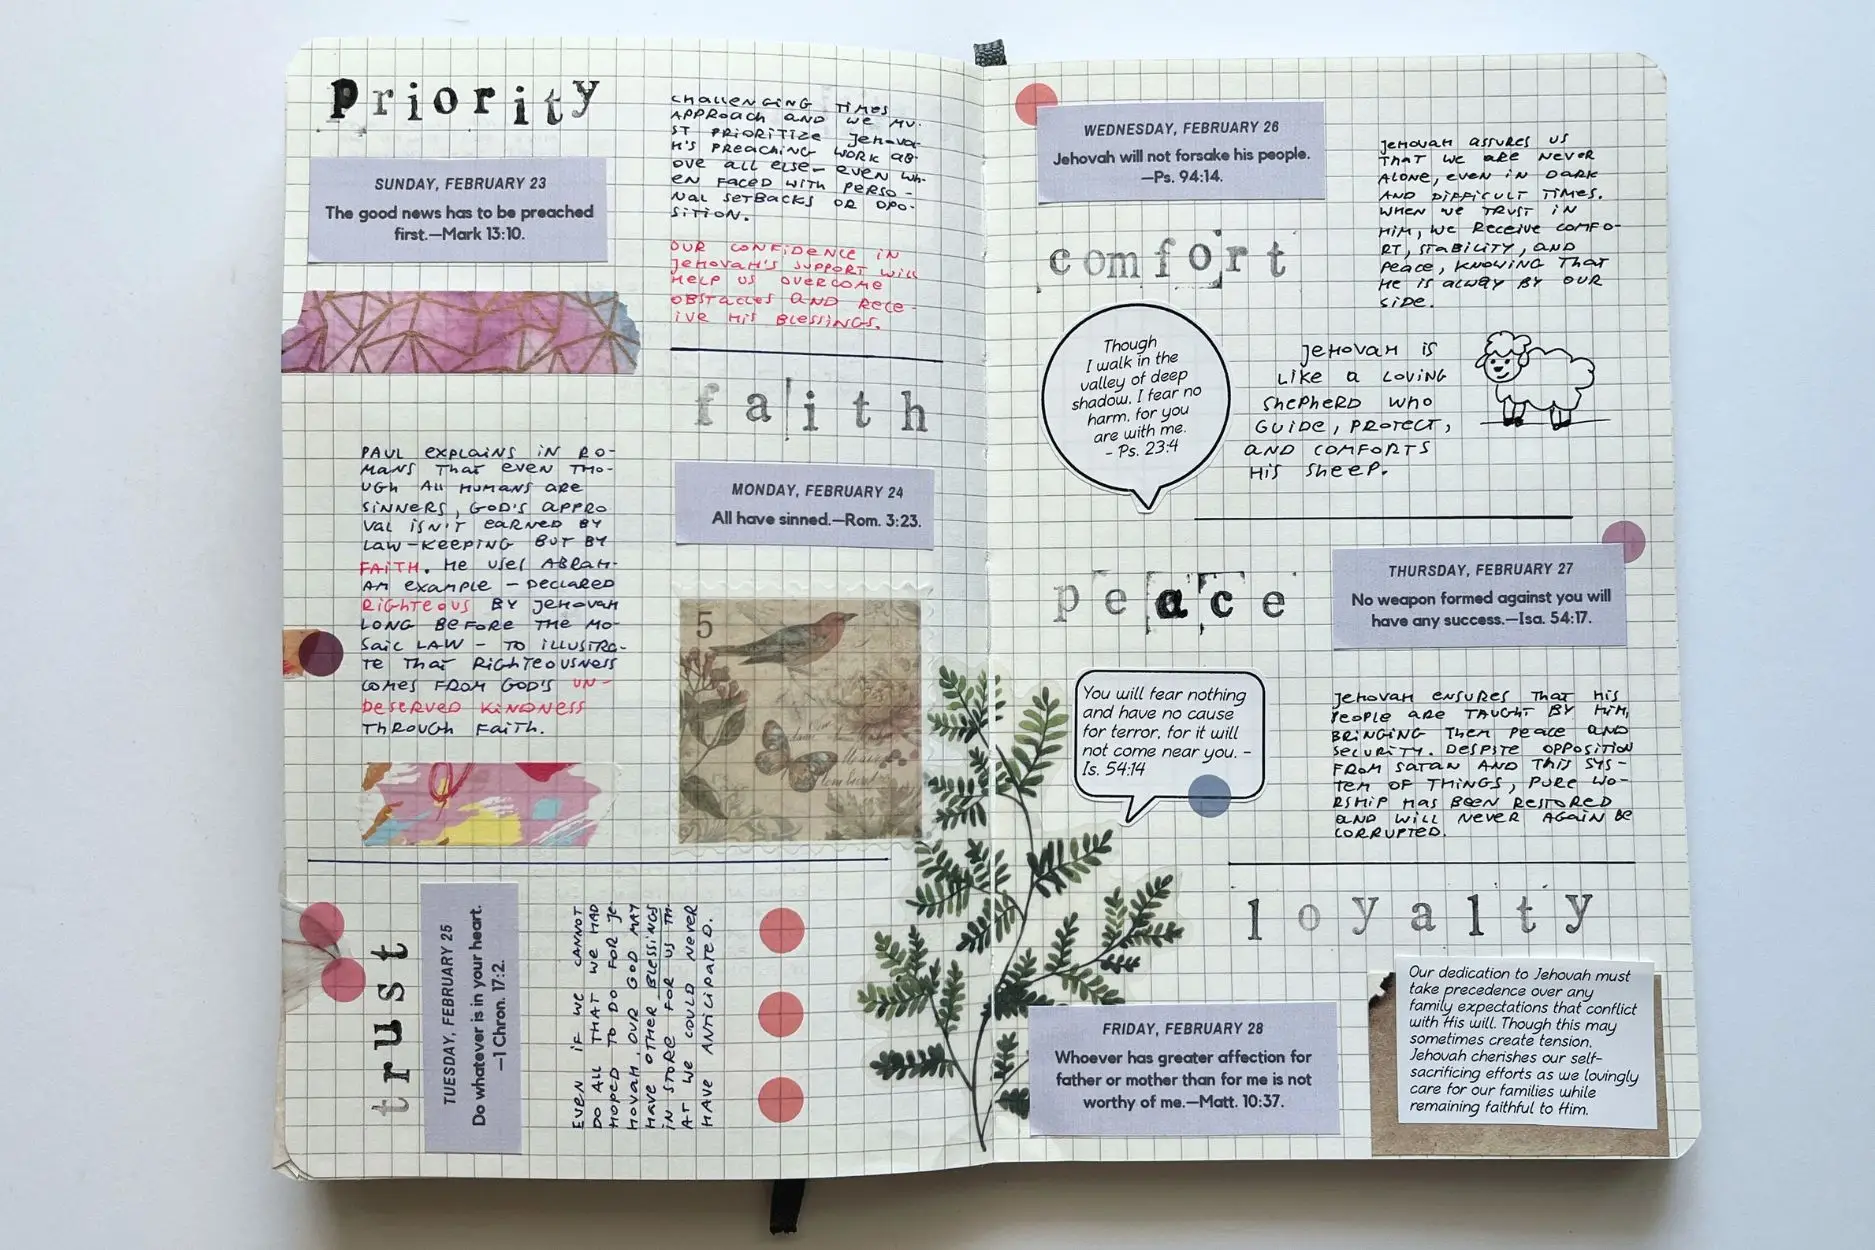 Priority
SUNDAY, FEBRUARY 23
The good news has to be preached
first.—Mark 13:10.
CHALLENGING TIMES
APPROACH AND WE MU-
ST PRIORITIZE JEHOVA-
H'S PREACHING WORK AB-
OVE ALL ELSE— EVEN WH-
EN FACED WITH PERSO-
NAL SETBACKS OR OPO-
SITION.
OUR CONFIDENCE IN
JEHOVAH'S SUPPORT WILL
HELP US OVERCOME
OBSTACLES AND RECE-
IVE HIS BLESSINGS.
faith
MONDAY, FEBRUARY 24
All have sinned.—Rom. 3:23.
PAUL EXPLAINS IN RO-
MANS THAT EVEN THO-
UGH ALL HUMANS ARE
SINNERS, GOD'S APPRO
VAL ISN'T EARNED BY
LAW-KEEPING BUT BY
FAITH. HE USES ABRAH-
AM EXAMPLE — DECLARED
RIGHTEOUS BY JEHOVAH
LONG BEFORE THE MO-
SAIC LAW — TO ILLUSTRA-
TE THAT RIGHTEOUSNESS
COMES FROM GOD'S UN-
DESERVED KINDNESS
THROUGH FAITH.
5
trust
TUESDAY, FEBRUARY 25
Do whatever is in your heart.
—1 Chron. 17:2.
EVEN IF WE CANNOT
DO ALL THAT WE HAD
HOPED TO DO FOR JE-
HOVAH, OUR GOD MAY
HAVE OTHER BLESSINGS
IN STORE FOR US TH-
AT WE COULD NEVER
HAVE ANTICIPATED.
WEDNESDAY, FEBRUARY 26
Jehovah will not forsake his people.
—Ps. 94:14.
comfort
JEHOVAH ASSURES US
THAT WE ARE NEVER
ALONE, EVEN IN DARK
AND DIFFICULT TIMES.
WHEN WE TRUST IN
HIM, WE RECEIVE COMFO-
RT, STABILITY, AND
PEACE, KNOWING THAT
HE IS ALWAY BY OUR
SIDE.
Though
I walk in the
valley of deep
shadow, I fear no
harm, for you
are with me.
- Ps. 23:4
JEHOVAH IS
LIKE A LOVING
SHEPHERD WHO
GUIDE, PROTECT,
AND COMFORTS
HIS SHEEP.
peace
THURSDAY, FEBRUARY 27
No weapon formed against you will
have any success.—Isa. 54:17.
You will fear nothing
and have no cause
for terror, for it will
not come near you. -
Is. 54:14
JEHOVAH ENSURES THAT HIS
PEOPLE ARE TAUGHT BY HIM,
BRINGING THEM PEACE AND
SECURITY. DESPITE OPPOSITION
FROM SATAN AND THIS SYS-
TEM OF THINGS, PURE WO-
RSHIP HAS BEEN RESTORED
AND WILL NEVER AGAIN BE
CORRUPTED.
loyalty
FRIDAY, FEBRUARY 28
Whoever has greater affection for
father or mother than for me is not
worthy of me.—Matt. 10:37.
Our dedication to Jehovah must
take precedence over any
family expectations that conflict
with His will. Though this may
sometimes create tension,
Jehovah cherishes our self-
sacrificing efforts as we lovingly
care for our families while
remaining faithful to Him.